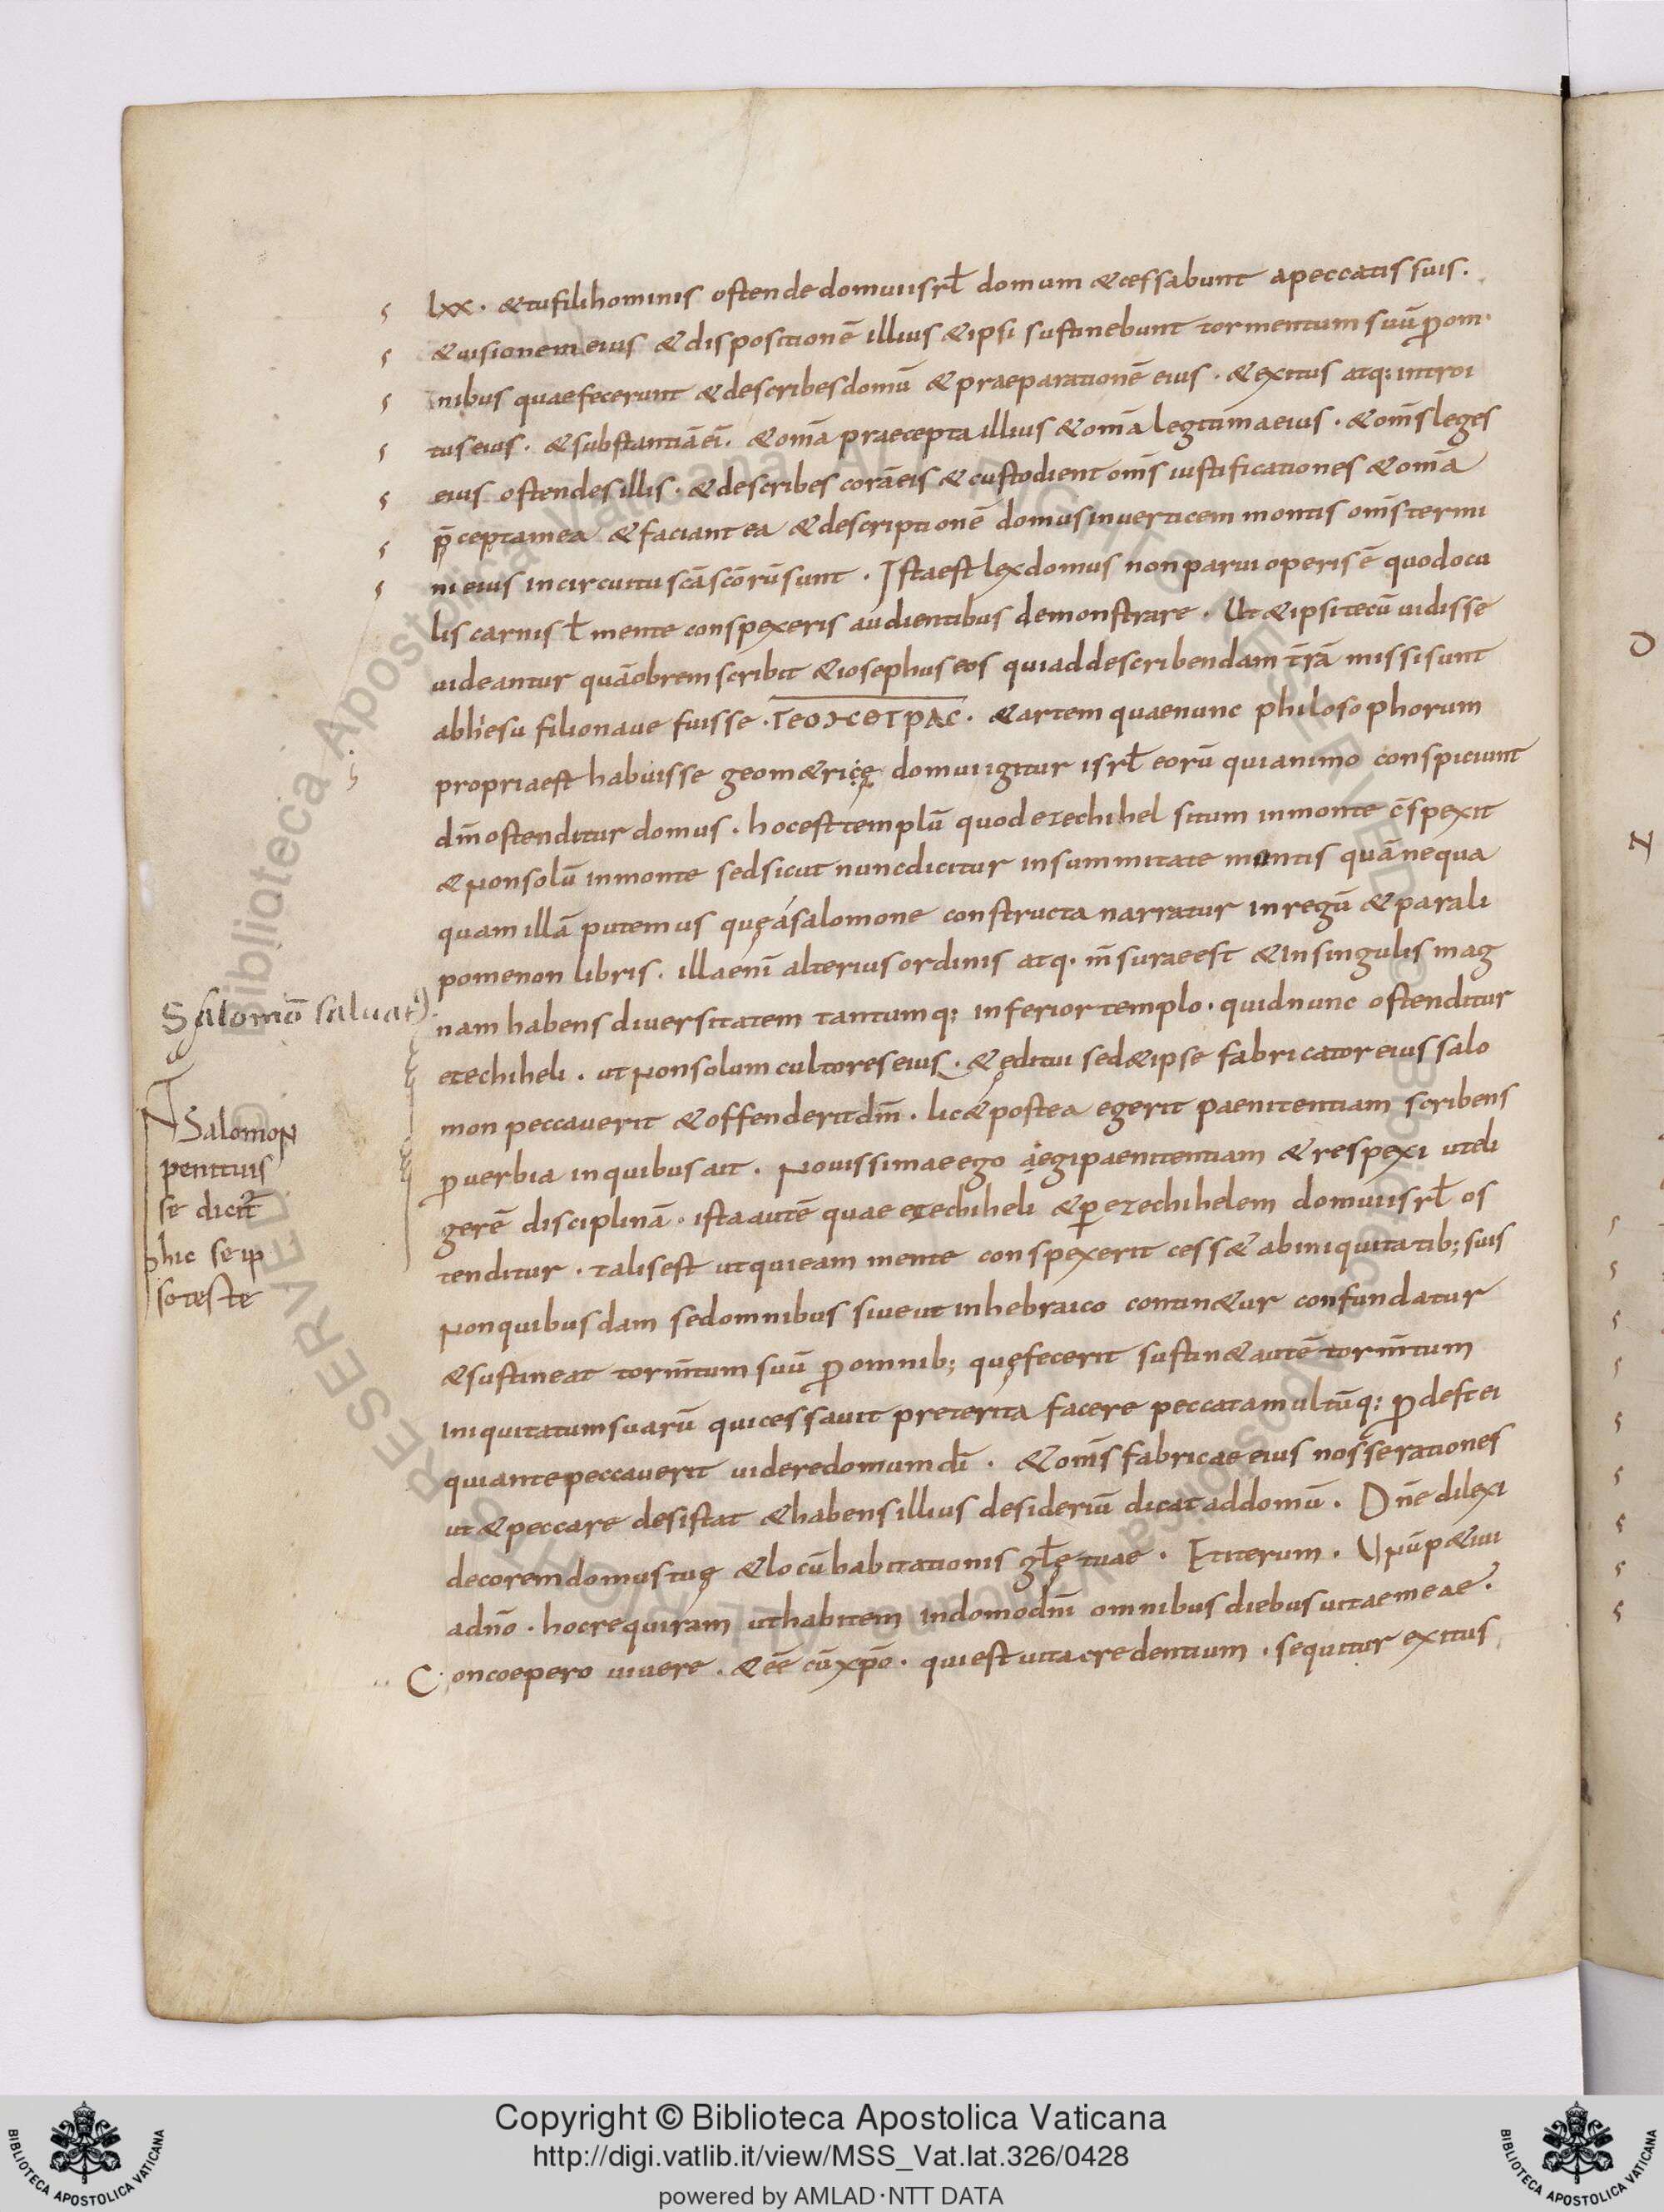 lxx. & tu fili hominis ostende domui isrł domum & cessabunt a peccatis suis.
& uisionem eius & dispositionē illius & ipsi sustinebunt tormentum suū ꝓ om
nibus quae fecerunt & describes domū & praeparationē eius. & exitus atq: introi
tus eius. & substantiā ei'. & om̄a praecepta illius & om̄a legitima eius. & om̄s leges
eius ostendes illis. & describes corā eis & custodient om̄s iustificationes & om̄a
p̄cepta mea & faciant ea & descriptionē domus in uerticem montis om̄s termi
ni eius in circuitu sc̄a sc̄orū sunt. Ista est lex domus non parui operis ē quod ocu
lis carnis ł mente conspexeris audientibus demonstrare. Ut & ipsi tecū uidisse
uideantur quāobrem scribit & iosephus eos qui ad describendam t̄rā missi sunt
ab hiesu filio naue fuisse.
& artem quae nunc philosophorum
propria est habuisse geom&rice domui igitur isrł eorū qui animo conspiciunt
dm̄ ostenditur domus. hoc est templū quod ezechihel situm in monte c̄spexit
& non solū in monte sed sicut nunc dicitur in summitate montis quā nequa
quam illā putemus quę a salomone constructa narratur in regū & parali
pomenon libris. illa enī alterius ordinis atq. m̄surae est & in singulis mag
nam habens diuersitatem tantumq: inferior templo. quid nunc ostenditur
ezechiheli. ut non solum cultores eius. & ęditui sed & ipse fabricator eius salo
mon peccauerit & offenderit dm̄. lic& postea egerit paenitentiam scribens
ꝓuerbia in quibus ait. Nouissimae ego aegi paenitentiam & respexi ut eli
gerē disciplinā. ista autē quae ezechiheli & ꝑ ezechihelem domui isrł os
tenditur. talis est ut qui eam mente conspexerit cess& ab iniquitatib; suis
Non quibusdam sed omnibus siue ut in hebraico contin&ur confundatur
& sustineat torm̄tum suū ꝓ omnib; quę fecerit sustin& autē torm̄tum
iniquitatum suarū qui cessauit preterita facere peccata multūq: ꝓdest ei
qui ante peccauerit uidere domum dī. & om̄s fabricae eius nosse rationes
ut & peccare desistat & habens illius desideriū dicat ad domū. Dn̄e dilexi
decorem domus tuę & locū habitationis głę tuae. Et iterum. Unū p&iui
a dn̄o. hoc requiram ut habitem in domo dn̄i omnibus diebus uitae meae.
Concoepero uiuere. & eē cū xp̄o. qui est uita credentium. sequitur exitus
Salomō saluat
Salomon
penituis
se dicit
hic se ip
so teste
Copyright © Biblioteca Apostolica Vaticana
http://digi.vatlib.it/view/MSS_Vat.lat.326/0428
powered by AMLAD·NTT DATA
BIBLIOTECA APOSTOLICA VATICANA
BIBLIOTECA APOSTOLICA VATICANA